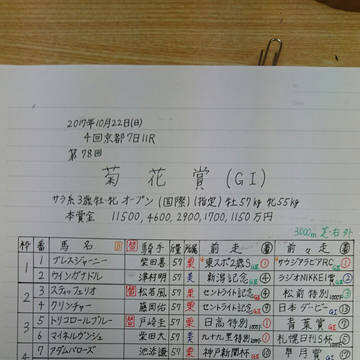 2017年10月22日(日)
4回京都7日11R
第78回
菊花賞(GI)
サラ系3歳牡・牝 オープン(国際)(指定) 牡57kg 牝55kg
本賞金 11500, 4600, 2900, 1700, 1150万円
3000m 芝右外
枠 番 馬名 騎手 前走 前々走
1 1 ブレスジャーニー 替 柴田善 57 栗 東スポ2歳S 1 サウジアラビアRC 1
2 ウインガナドル 津村明 57 美 新潟記念 4 ラジオNIKKEI賞 2
2 3 スティッフェリオ 替 松若風 57 栗 セントライト記念 4 松前特別
4 クリンチャー 藤岡佑 57 栗 セントライト記念 9 日本ダービー 13
3 5 トリコロールブルー 替 戸崎圭 57 栗 日高特別 1 青葉賞 7
6 マイネルヴンシュ 柴田大 57 美 九十九里特別 1 札幌日刊S杯
4 7 アダムバローズ 池添謙 57 栗 神戸新聞杯 皐月賞